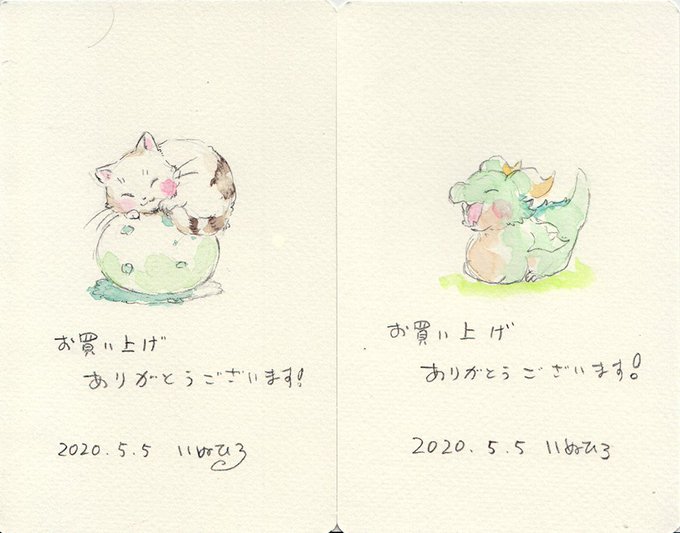 お買い上げ
ありがとうございます!
2020.5.5 いぬひろ
お買い上げ
ありがとうございます!
2020.5.5 いぬひろ